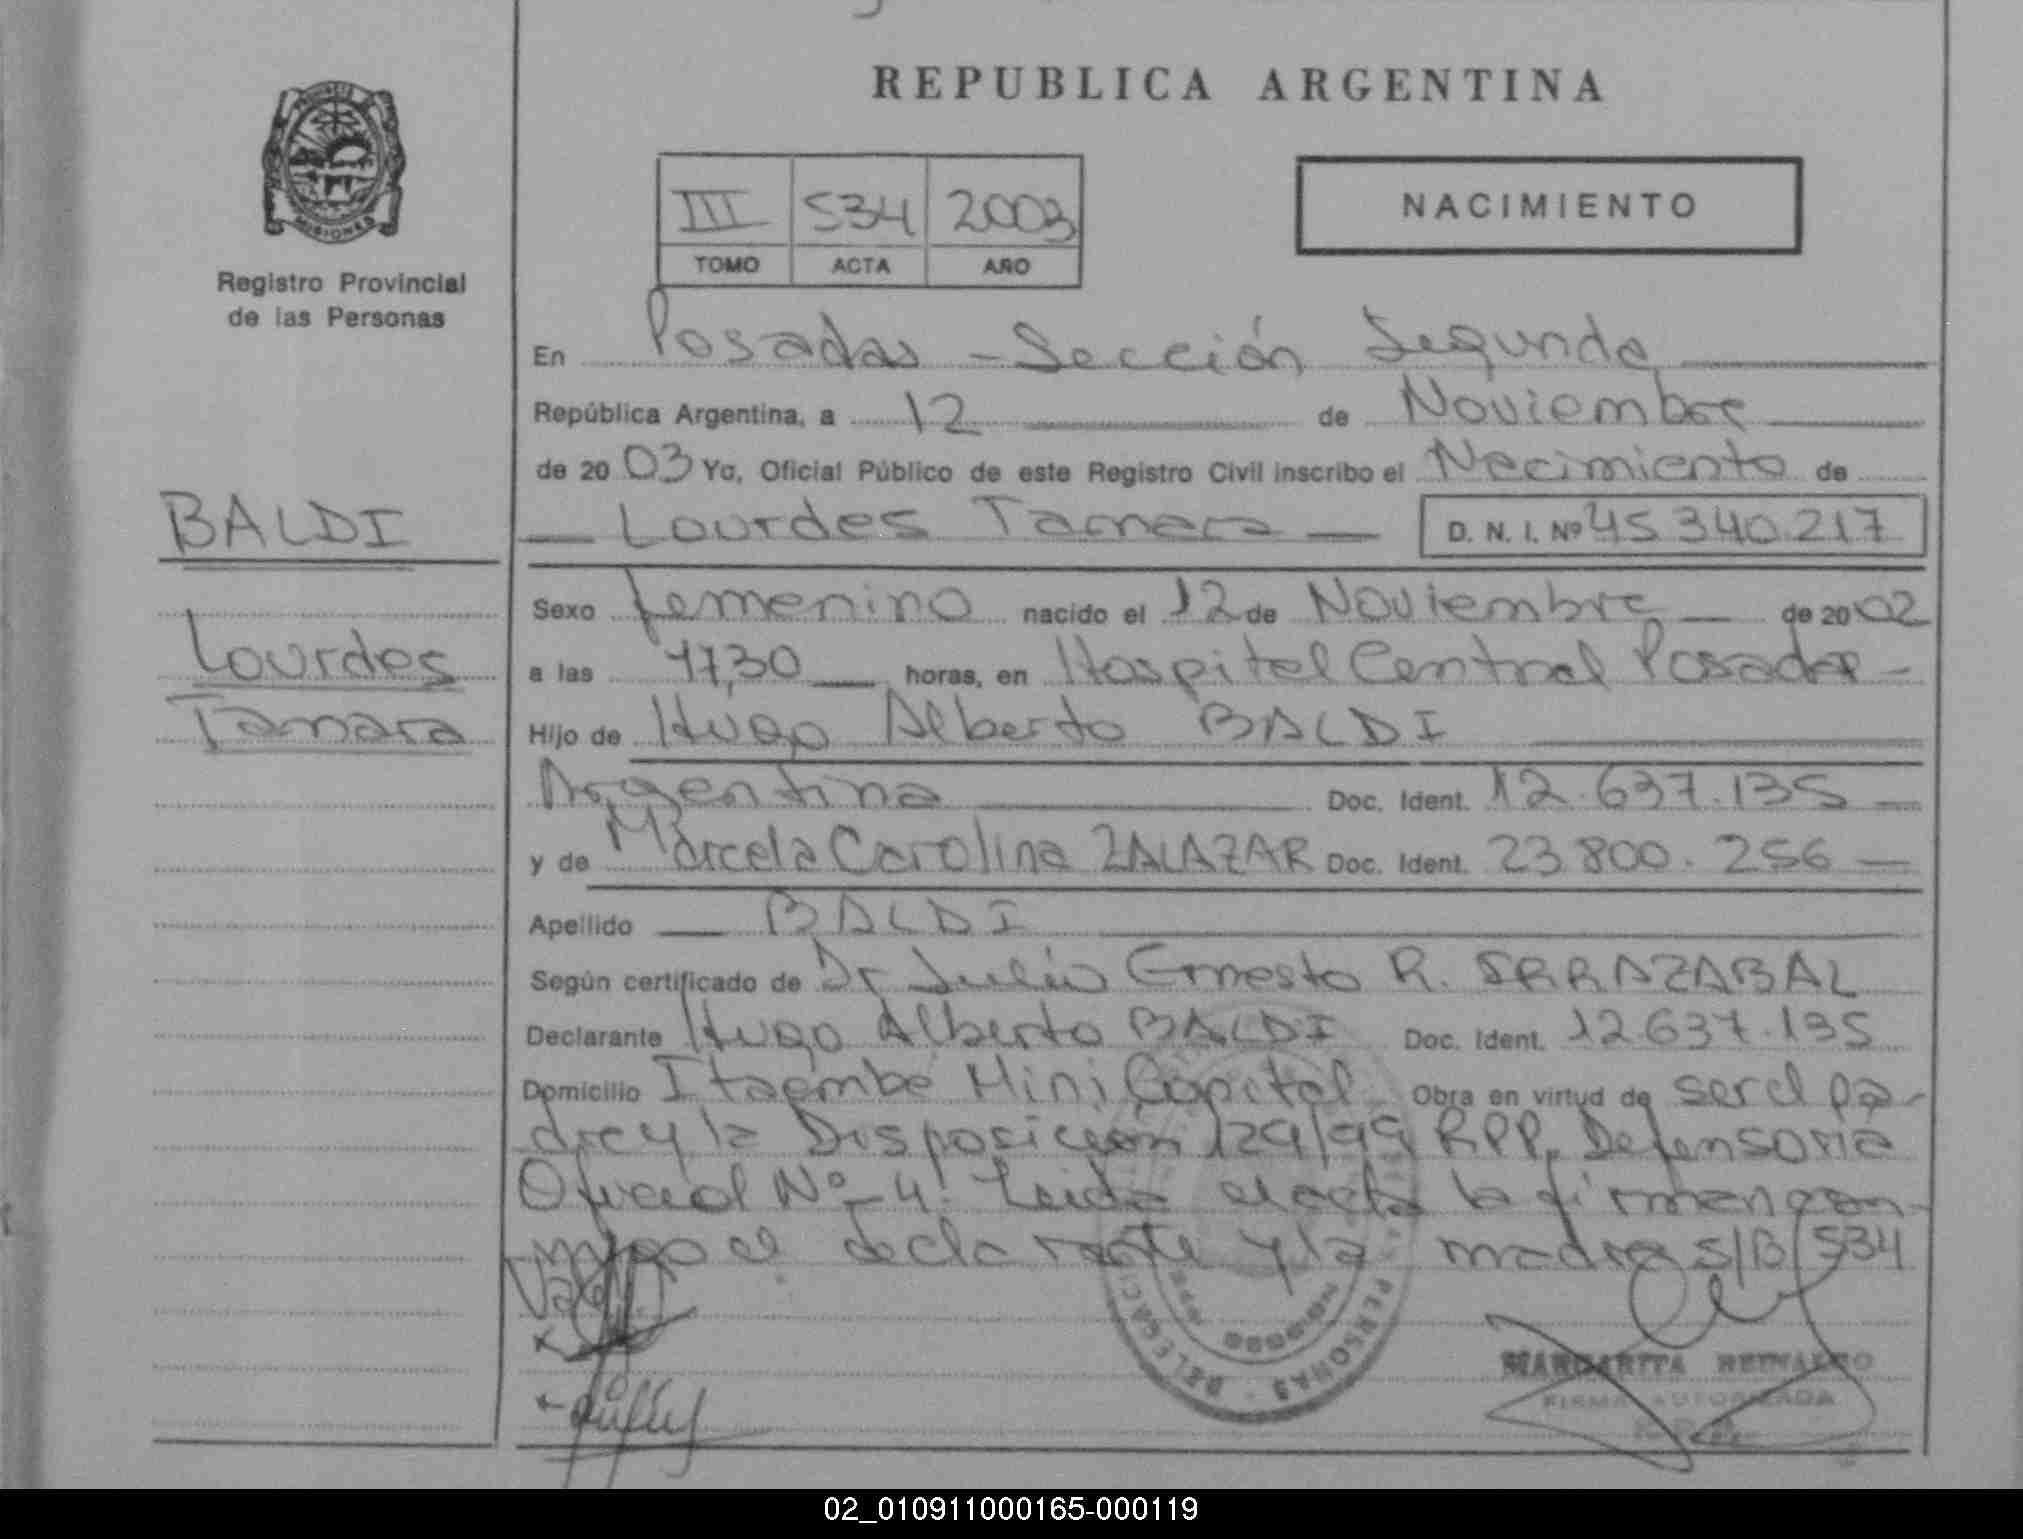 REPUBLICA ARGENTINA
PROVINCIA DE
MISIONES
Registro Provincial
de las Personas
III 534 2003
TOMO ACTA AÑO
NACIMIENTO
En Posadas - Sección Segunda
República Argentina, a 12 de Noviembre
de 2003 Yo, Oficial Público de este Registro Civil inscribo el Nacimiento de
Lourdes Tamara D. N. I. Nº 45.340.217
BALDI
Lourdes
Tamara
Sexo femenino nacido el 12 de Noviembre de 2002
a las 17,30 horas, en Hospital Central Posadas -
Hijo de Hugo Alberto BALDI
Argentina Doc. Ident. 12.637.135
y de Marcela Carolina ZALAZAR Doc. Ident. 23.800.256
Apellido BALDI
Según certificado de Dr Julio Ernesto R. IRRAZABAL
Declarante Hugo Alberto BALDI Doc. Ident. 12.637.135
Domicilio Itaembe Mini Capital Obra en virtud de ser el pa-
dre y la Disposición 129/99 RPP. Defensoria
Oficial Nº 4. Leida el acta la firman con-
migo el declarante y la madre S/B 534
Vale
PERSONAS - DELEGACI
MARGARITA REINALDO
FIRMA AUTORIZADA
02_010911000165-000119